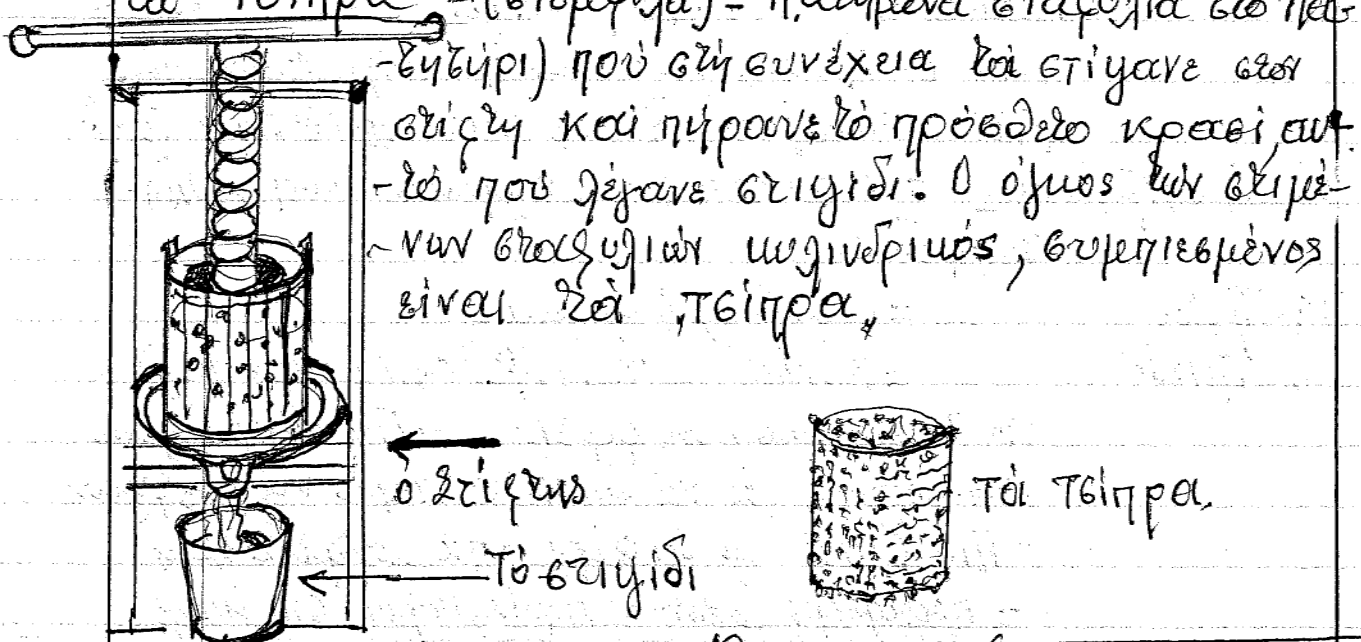 τά τσίπρα - (στέμφυλα) - πατημένα σταφύλια στό πα-
-τητήρι) πού στή συνέχεια τά στίψανε στόν
στίφτη καί πήρανε τό πρόσθετο κρασί, αὐ-
-τό πού λέγανε στιψίδι. Ο όγκος τών στιμέ-
-νων σταφυλιών κυλινδρικός, συμπιεσμένος
είναι τά "τσίπρα"
ὁ Στίφτης
Τά τσίπρα.
Τό στιψίδι